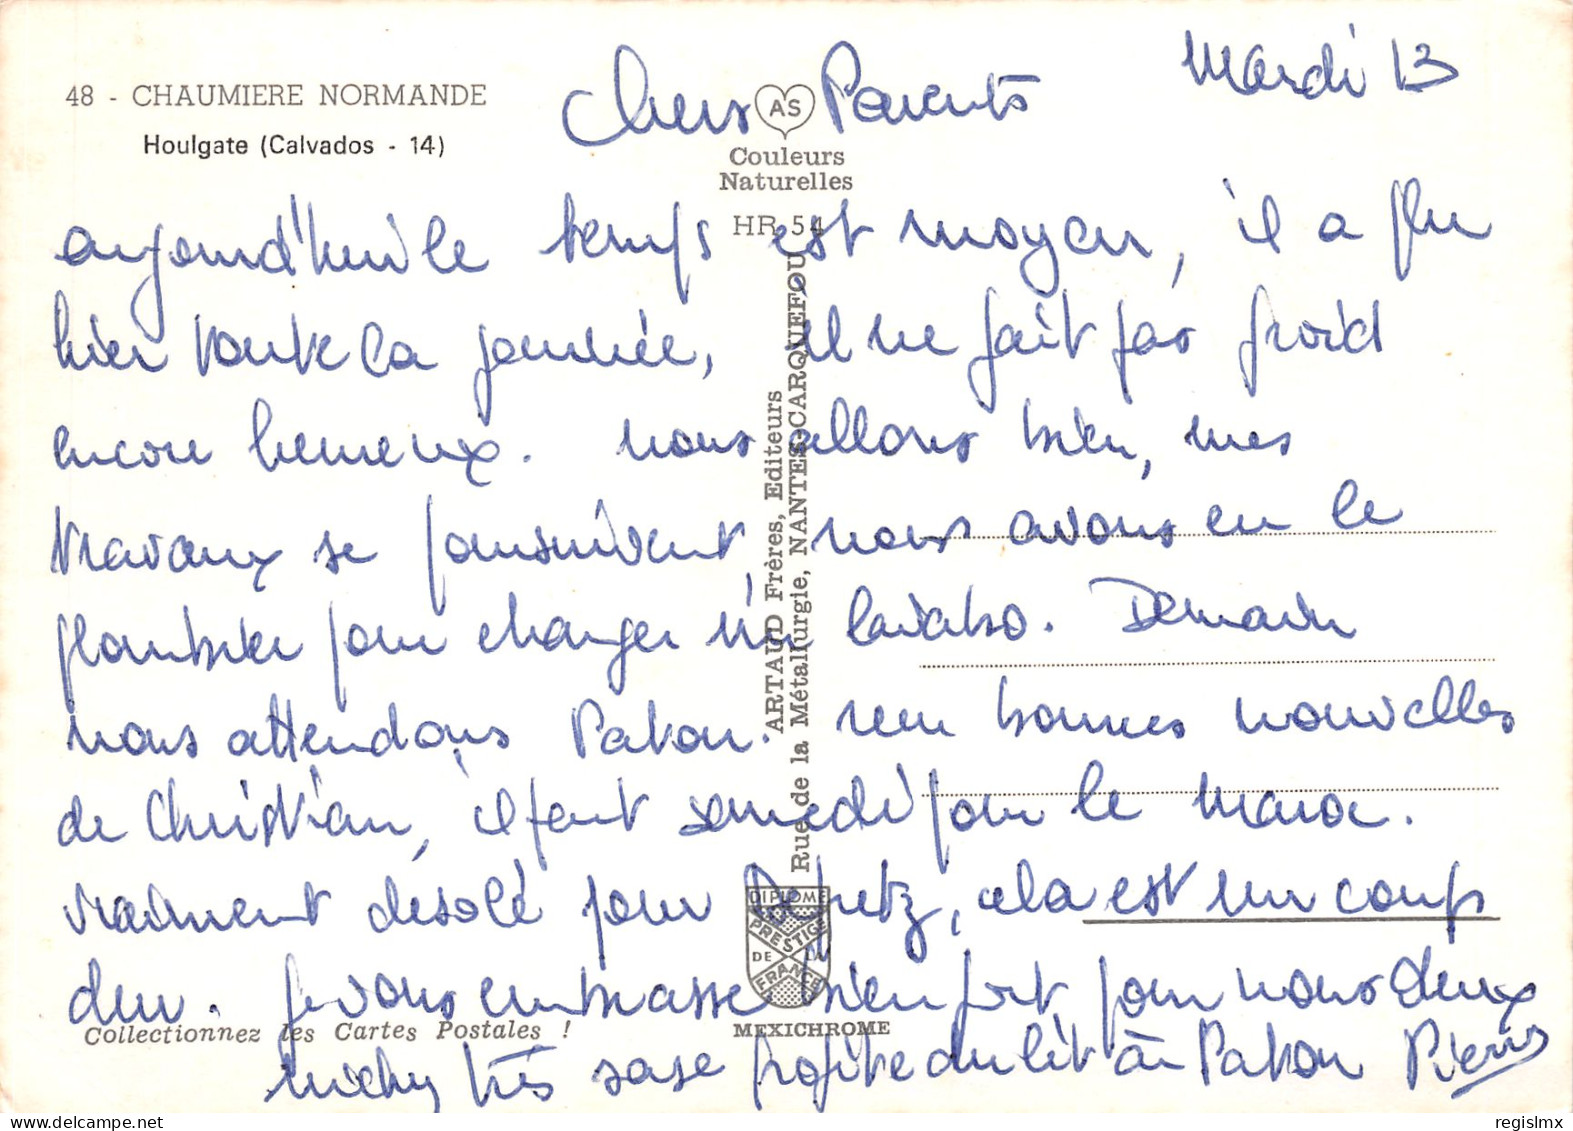 48 - CHAUMIERE NORMANDE
Houlgate (Calvados - 14)
Mardi 13
Chers Parents
AS
Couleurs
Naturelles
HR 54
aujourd'hui le temps est moyen, il a plu
hier toute la journée, il ne fait pas froid
encore heureux. nous allons bien, mes
travaux se poursuivent, nous avons eu le
plombier pour changer un lavabo. Demain
nous attendons Paton. bonnes nouvelles
de Christian, il part samedi pour le Maroc.
vraiment désolé pour cela est un coup
dur. Je vous embrasse bien fort pour nous deux
michy très sage profite du lit à Paton Pierre
ARTAUD Frères, Editeurs
Rue de la Métallurgie, NANTES-CARQUEFOU
DIPLOME
PRESTIGE
DE LA
FRANCE
MEXICHROME
Collectionnez les Cartes Postales !
regislmx